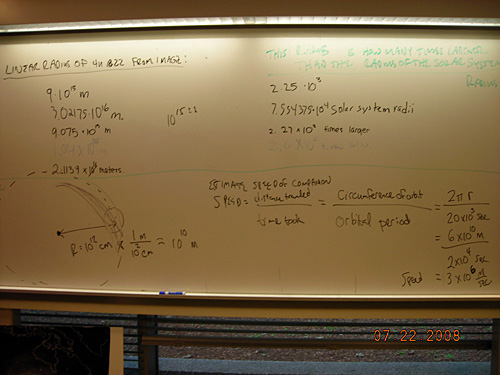 LINEAR RADIUS OF 4U 1822 FROM IMAGE:
9·10¹⁵ m
3.02175·10¹⁶ m
9.075·10¹⁵ m
2.1134 x10 meters
10¹⁵=1
THIS RADIUS IS HOW MANY TIMES LARGER
THAN THE RADIUS OF THE SOLAR SYSTEM
RADIUS
2.25·10³
7.554375·10⁴ Solar system radii
2.27 x10³ times larger
ESTIMATE SPEED OF COMPANION
SPEED = distance traveled / time took = Circumference of orbit / orbital period = 2πr / 20x10³ sec
= 6x10¹⁰ m / 2x10⁴ sec
Speed = 3x10⁶ m/sec
R=10¹² cm x 1m / 10² cm = 10¹⁰ m
07 22 2008